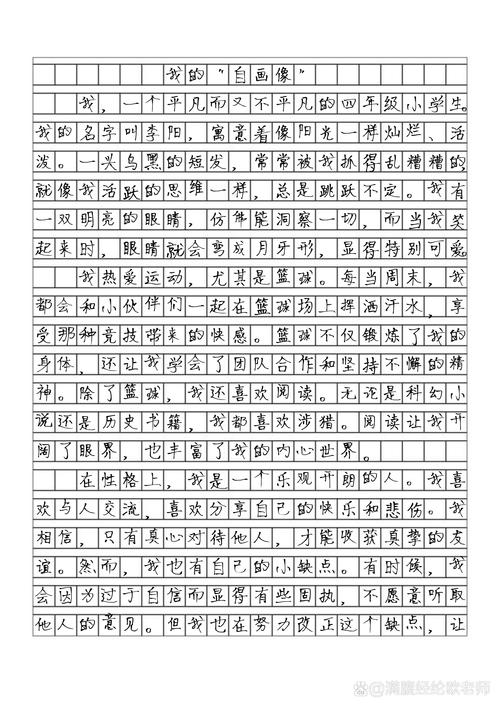 我的“自画像”
我，一个平凡而又不平凡的四年级小学生。
我的名字叫李阳，寓意着像阳光一样灿烂、活
泼。一头乌黑的短发，常常被我抓得乱糟糟的，
就像我活跃的思维一样，总是跳跃不定。我有
一双明亮的眼睛，仿佛能洞察一切，而当我笑
起来时，眼睛就会弯成月牙形，显得特别可爱。
我热爱运动，尤其是篮球。每当周末，我
都会和小伙伴们一起在篮球场上挥洒汗水，享
受那种竞技带来的快感。篮球不仅锻炼了我的
身体，还让我学会了团队合作和坚持不懈的精
神。除了篮球，我还喜欢阅读。无论是科幻小
说还是历史书籍，我都喜欢涉猎。阅读让我开
阔了眼界，也丰富了我的内心世界。
在性格上，我是一个乐观开朗的人。我喜
欢与人交流，喜欢分享自己的快乐和悲伤。我
相信，只有真心对待他人，才能收获真挚的友
谊。然而，我也有自己的小缺点。有时候，我
会因为过于自信而显得有些固执，不愿意听取
他人的意见。但我也在努力改正这个缺点，让
满腹经纶欧老师